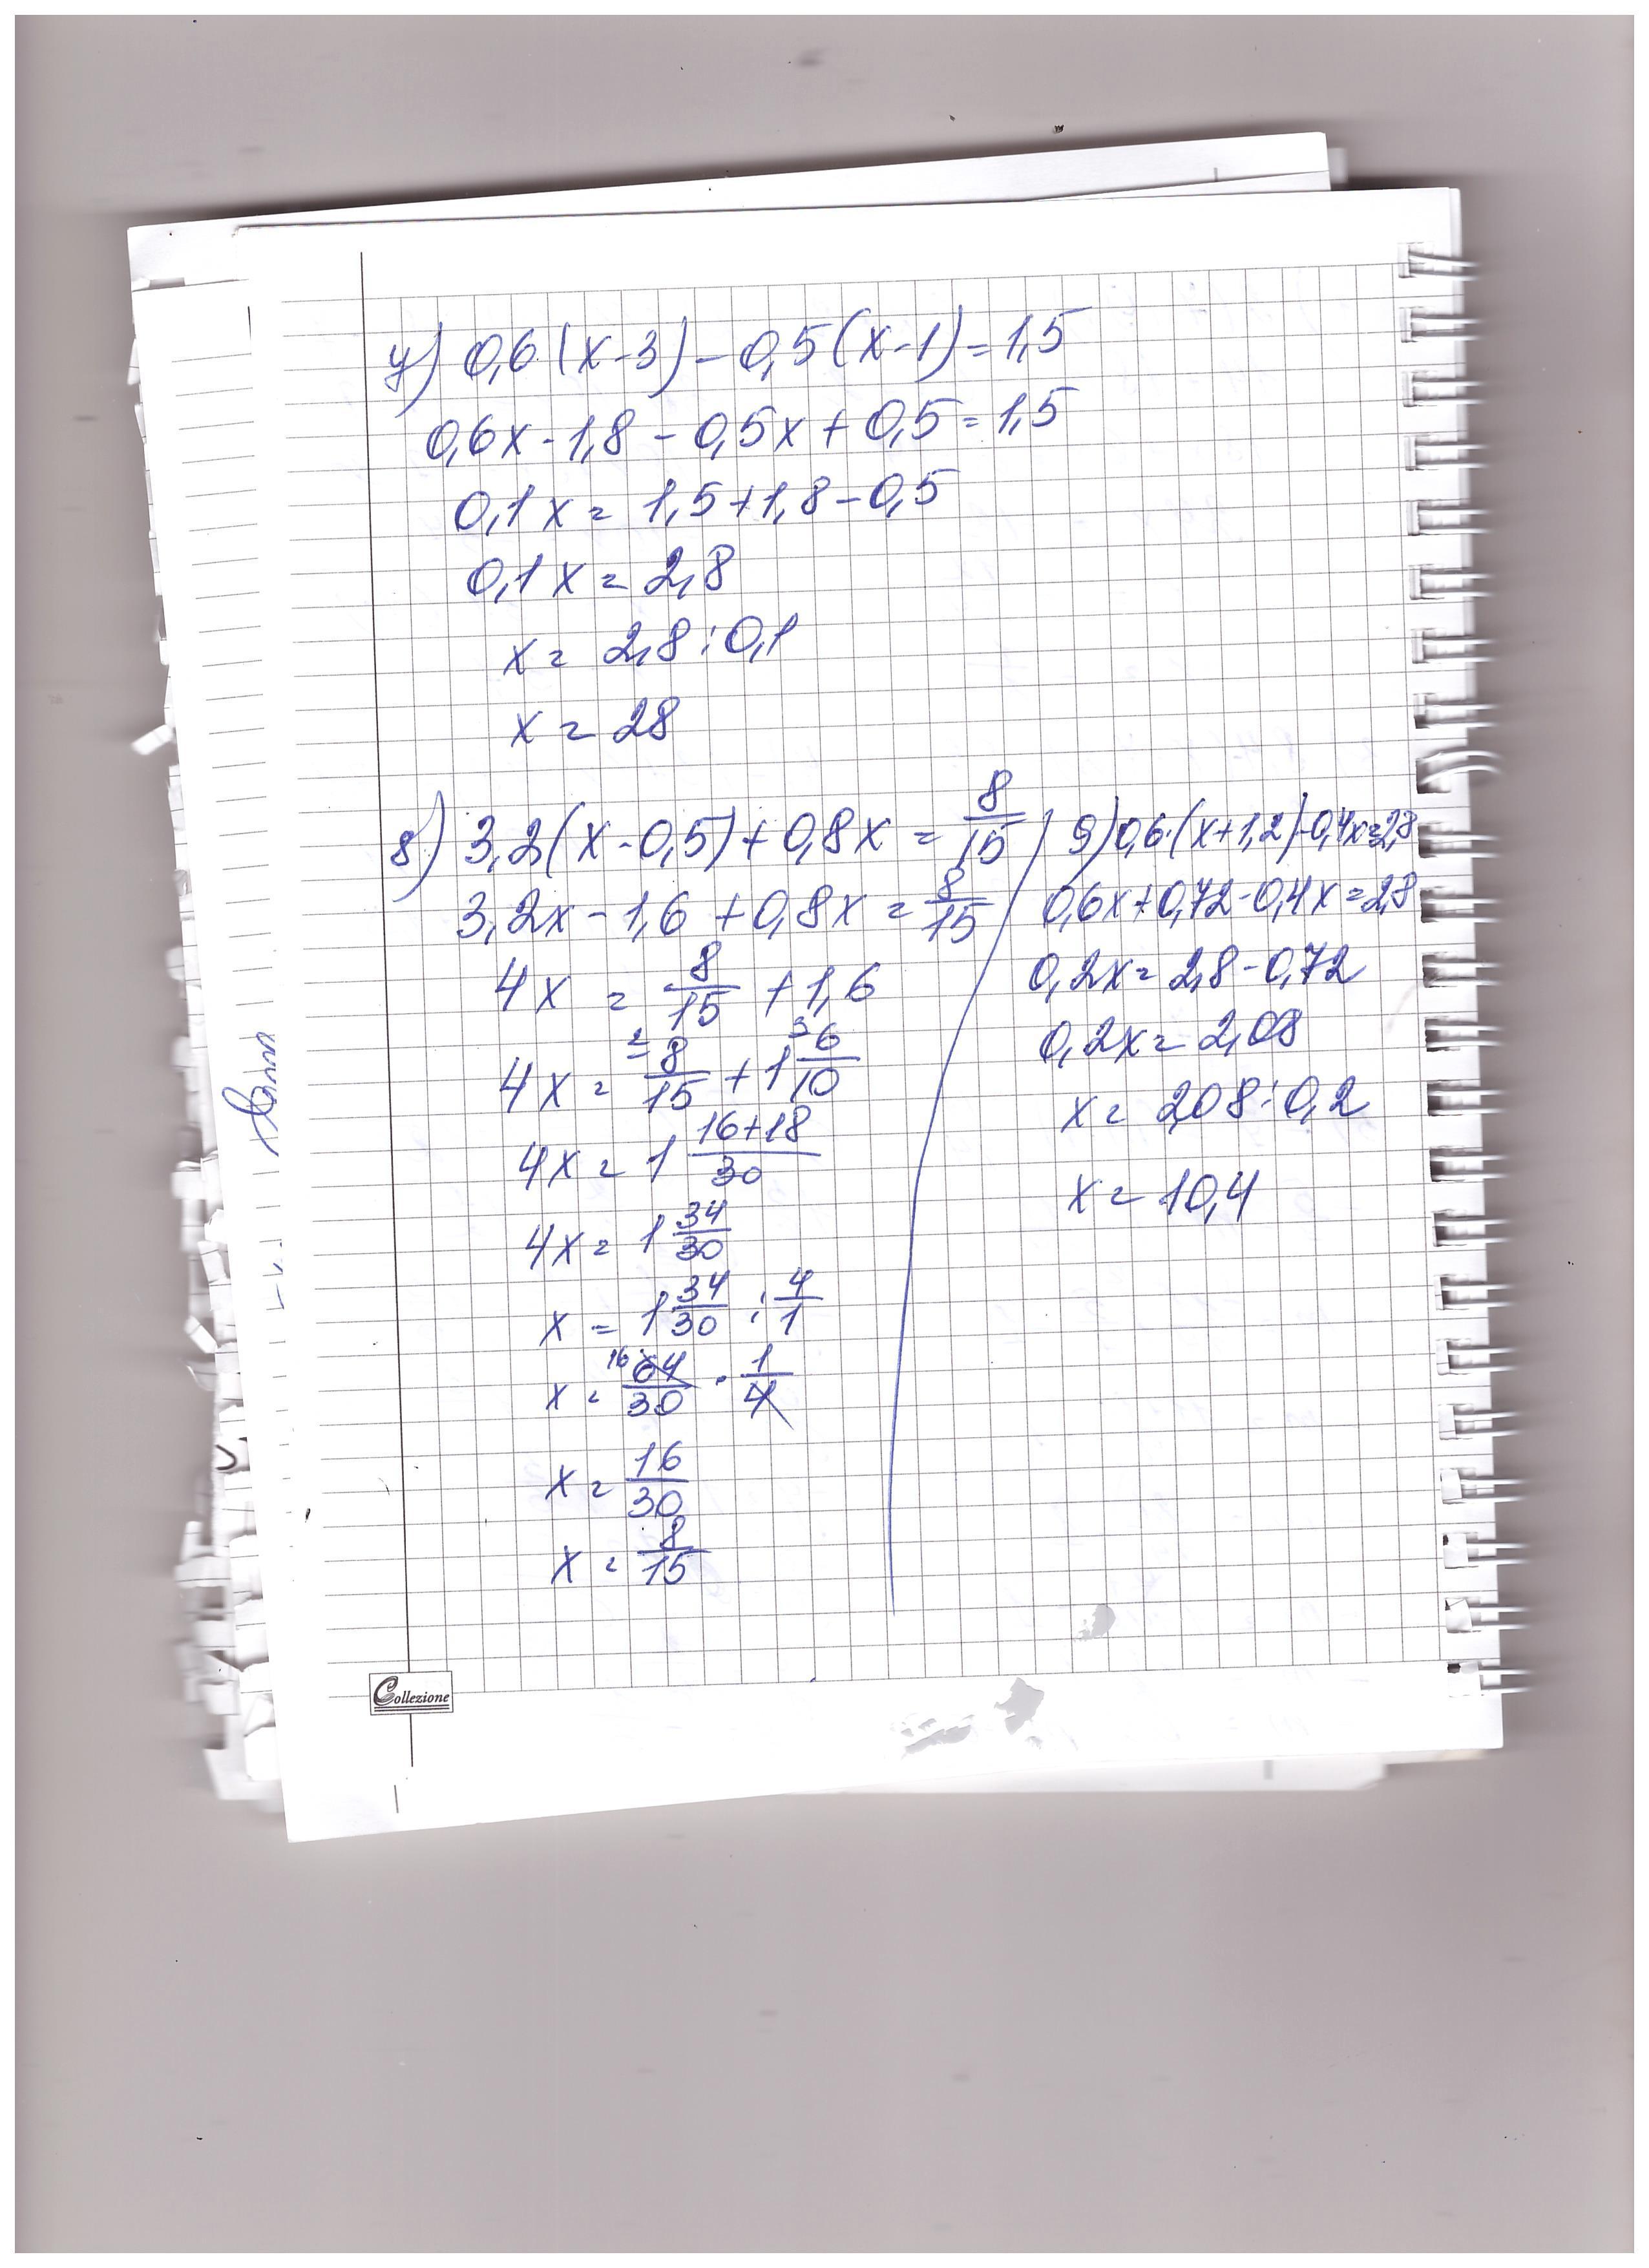 у) 0,6·(x-3)-0,5(x-1)=1,5
0,6x-1,8-0,5x+0,5=1,5
0,1x=1,5+1,8-0,5
0,1x=2,8
x=2,8:0,1
x=28
8) 3,2(x-0,5)+0,8x=8/15
3,2x-1,6+0,8x=8/15
4x=8/15+1,6
4x=2 8/15+1 3 6/10
4x=1 16+18/30
4x=1 34/30
x=1 34/30:4/1
x=16 64/30·1/4
x=16/30
x=8/15
9) 0,6·(x+1,2)-0,4x=2,8
0,6x+0,72-0,4x=2,8
0,2x=2,8-0,72
0,2x=2,08
x=2,08:0,2
x=10,4
Collezione